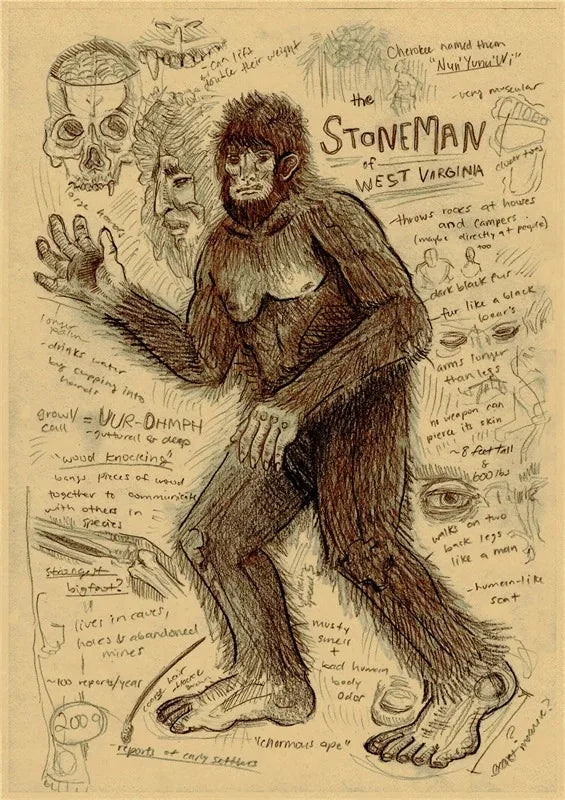 can lift
double their weight
Cherokee named them
"Nun'Yunu'Wi"
- very muscular
the
STONEMAN
of
WEST VIRGINIA
throws rocks at houses
and campers
(maybe directly at people)
too
dark black fur
fur like a black
bear's
arms longer
than legs
no weapon can
pierce its skin
~ 8 feet tall
&
600 lbs
walks on two
back legs
like a man
- human-like
scat
- drinks water
by cupping into
hands
growl/
call = UUR-OHMPH
- guttural & deep
"wood knocking"
bangs pieces of wood
together to communicate
with others in
species
strongest
bigfoot?
lives in caves,
holes & abandoned
mines
~100 reports/year
2009
coarse hair
reports of early settlers
"enormous ape"
musty
smell
+
bad human
body
odor